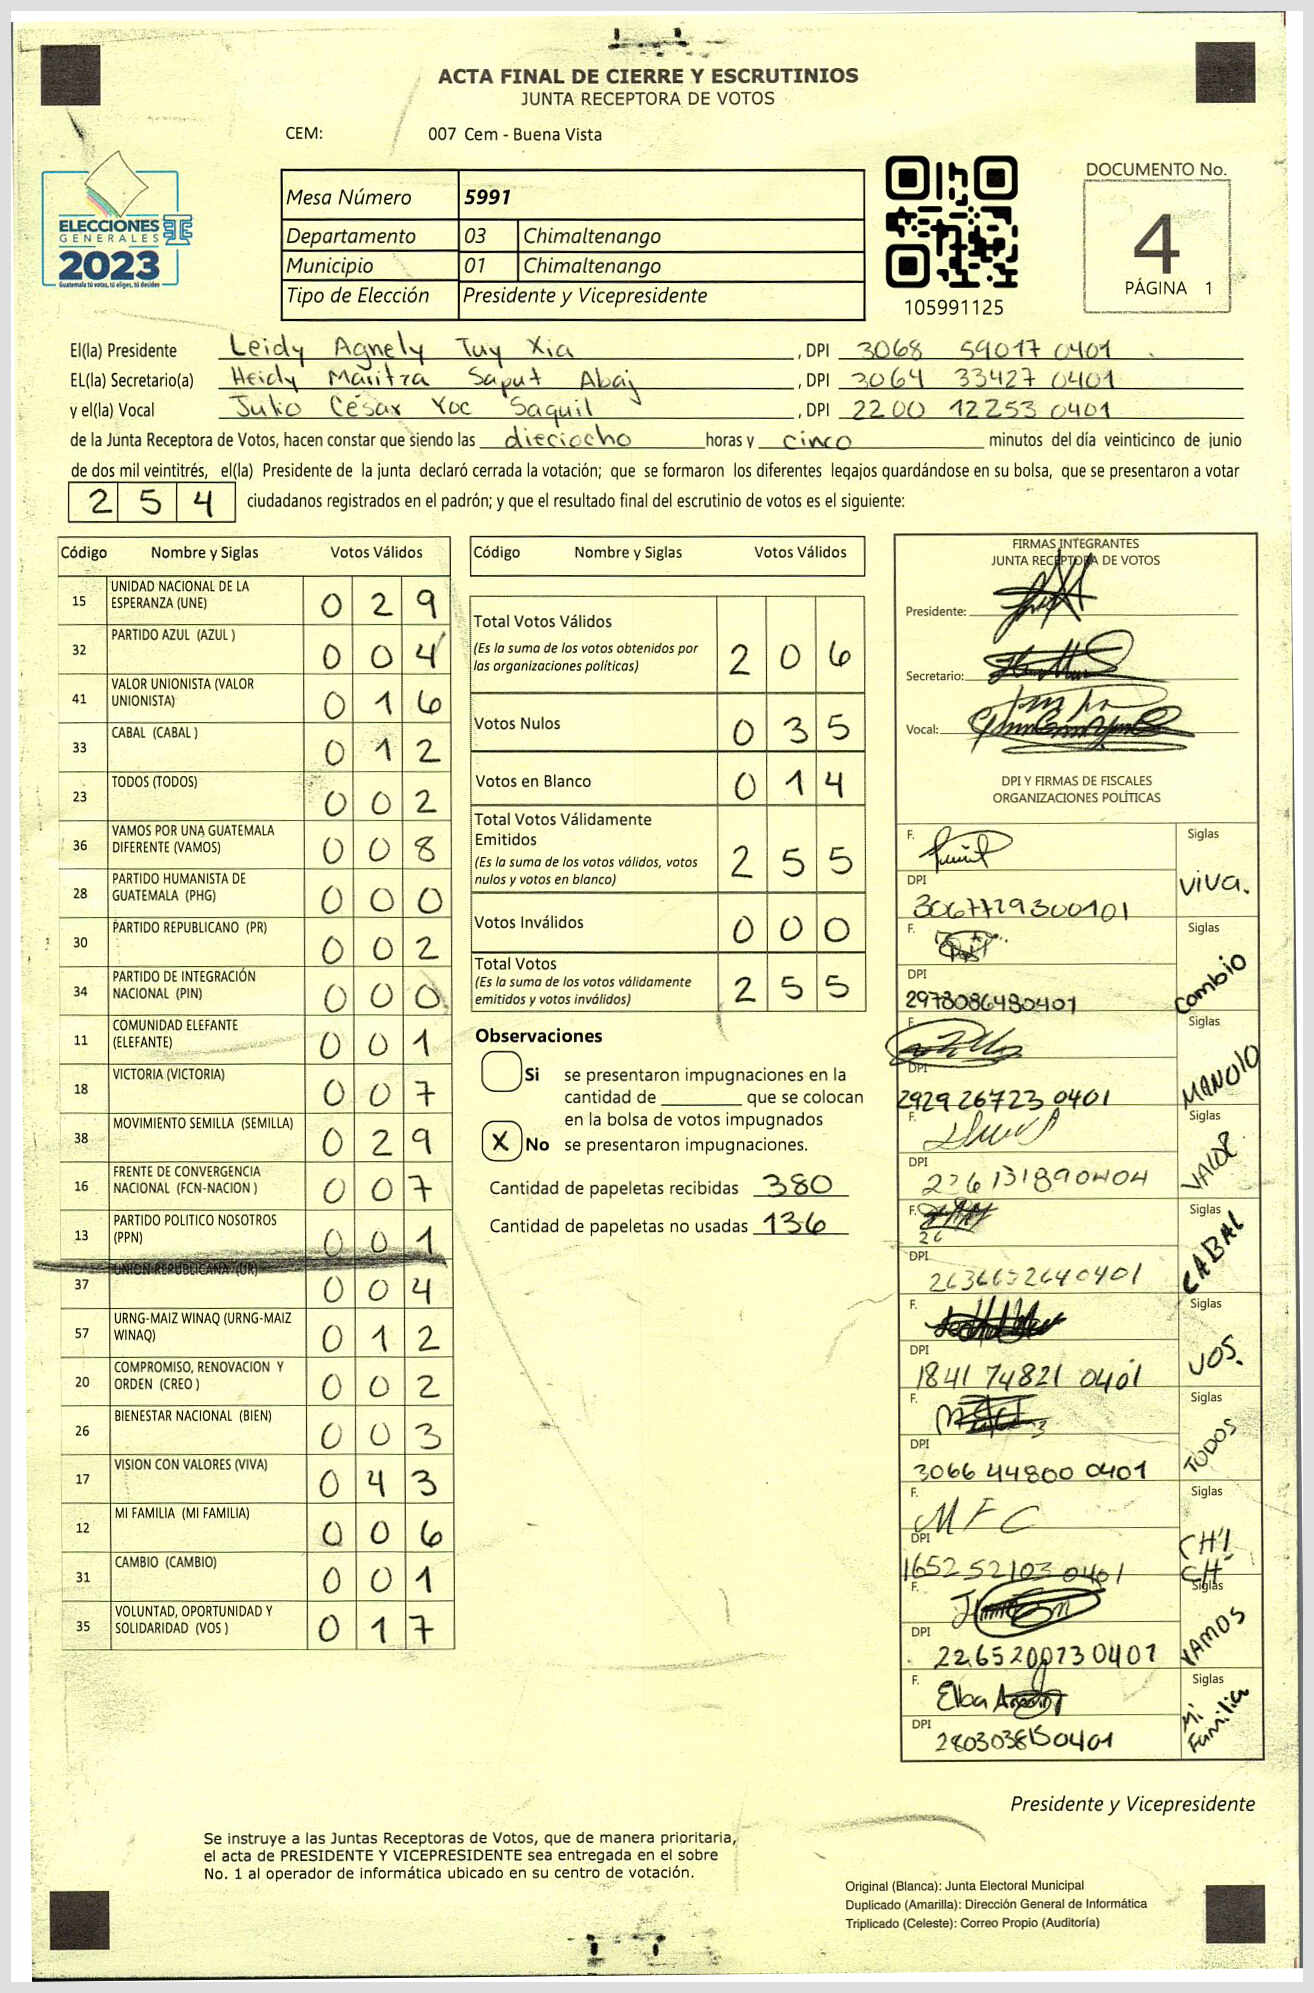 ACTA FINAL DE CIERRE Y ESCRUTINIOS
JUNTA RECEPTORA DE VOTOS
CEM: 007 Cem - Buena Vista
ELECCIONES
GENERALES
2023
Guatemala tú votas, tú eliges, tú decides
Mesa Número 5991
Departamento 03 Chimaltenango
Municipio 01 Chimaltenango
Tipo de Elección Presidente y Vicepresidente
105991125
DOCUMENTO No.
4
PÁGINA 1
El(la) Presidente Leidy Agnely Tuy Xia , DPI 3068 59017 0401
EL(la) Secretario(a) Heidy Maritza Saput Abaj , DPI 3064 33427 0401
y el(la) Vocal Julio César Yoc Saquil , DPI 2200 12253 0401
de la Junta Receptora de Votos, hacen constar que siendo las dieciocho horas y cinco minutos del día veinticinco de junio
de dos mil veintitrés, el(la) Presidente de la junta declaró cerrada la votación; que se formaron los diferentes legajos guardándose en su bolsa, que se presentaron a votar
254 ciudadanos registrados en el padrón; y que el resultado final del escrutinio de votos es el siguiente:
Código Nombre y Siglas Votos Válidos
15 UNIDAD NACIONAL DE LA ESPERANZA (UNE) 029
32 PARTIDO AZUL (AZUL ) 004
41 VALOR UNIONISTA (VALOR UNIONISTA) 016
33 CABAL (CABAL ) 012
23 TODOS (TODOS) 002
36 VAMOS POR UNA GUATEMALA DIFERENTE (VAMOS) 008
28 PARTIDO HUMANISTA DE GUATEMALA (PHG) 000
30 PARTIDO REPUBLICANO (PR) 002
34 PARTIDO DE INTEGRACIÓN NACIONAL (PIN) 000
11 COMUNIDAD ELEFANTE (ELEFANTE) 001
18 VICTORIA (VICTORIA) 007
38 MOVIMIENTO SEMILLA (SEMILLA) 029
16 FRENTE DE CONVERGENCIA NACIONAL (FCN-NACION ) 007
13 PARTIDO POLITICO NOSOTROS (PPN) 001
37 UNION REPUBLICANA (UR) 004
57 URNG-MAIZ WINAQ (URNG-MAIZ WINAQ) 012
20 COMPROMISO, RENOVACION Y ORDEN (CREO ) 002
26 BIENESTAR NACIONAL (BIEN) 003
17 VISION CON VALORES (VIVA) 043
12 MI FAMILIA (MI FAMILIA) 006
31 CAMBIO (CAMBIO) 001
35 VOLUNTAD, OPORTUNIDAD Y SOLIDARIDAD (VOS ) 017
Código Nombre y Siglas Votos Válidos
Total Votos Válidos 206
(Es la suma de los votos obtenidos por
las organizaciones políticas)
Votos Nulos 035
Votos en Blanco 014
Total Votos Válidamente
Emitidos 255
(Es la suma de los votos válidos, votos
nulos y votos en blanco)
Votos Inválidos 000
Total Votos 255
(Es la suma de los votos válidamente
emitidos y votos inválidos)
Observaciones
Si se presentaron impugnaciones en la
cantidad de que se colocan
en la bolsa de votos impugnados
X No se presentaron impugnaciones.
Cantidad de papeletas recibidas 380
Cantidad de papeletas no usadas 136
FIRMAS INTEGRANTES
JUNTA RECEPTORA DE VOTOS
Presidente:
Secretario:
Vocal:
DPI Y FIRMAS DE FISCALES
ORGANIZACIONES POLÍTICAS
F. Siglas
DPI VIVA.
3067729300101
F. Siglas
DPI Cambio
2978086480401
F. Siglas
DPI MANOLO
2929 26723 0401
F. Siglas
DPI VALOR
226131890404
F. Siglas
26
DPI CABAL
2636652640401
F. Siglas
DPI VOS.
1841 74821 0401
F. Siglas
DPI TODOS
3066 44800 0401
F. MFC Siglas
DPI CH'I CH'
1652 52103 0401
F. Siglas
DPI VAMOS
2265200730401
F. Elba Siglas
DPI Mi Familia
2803038150401
Presidente y Vicepresidente
Se instruye a las Juntas Receptoras de Votos, que de manera prioritaria,
el acta de PRESIDENTE Y VICEPRESIDENTE sea entregada en el sobre
No. 1 al operador de informática ubicado en su centro de votación.
Original (Blanca): Junta Electoral Municipal
Duplicado (Amarilla): Dirección General de Informática
Triplicado (Celeste): Correo Propio (Auditoría)